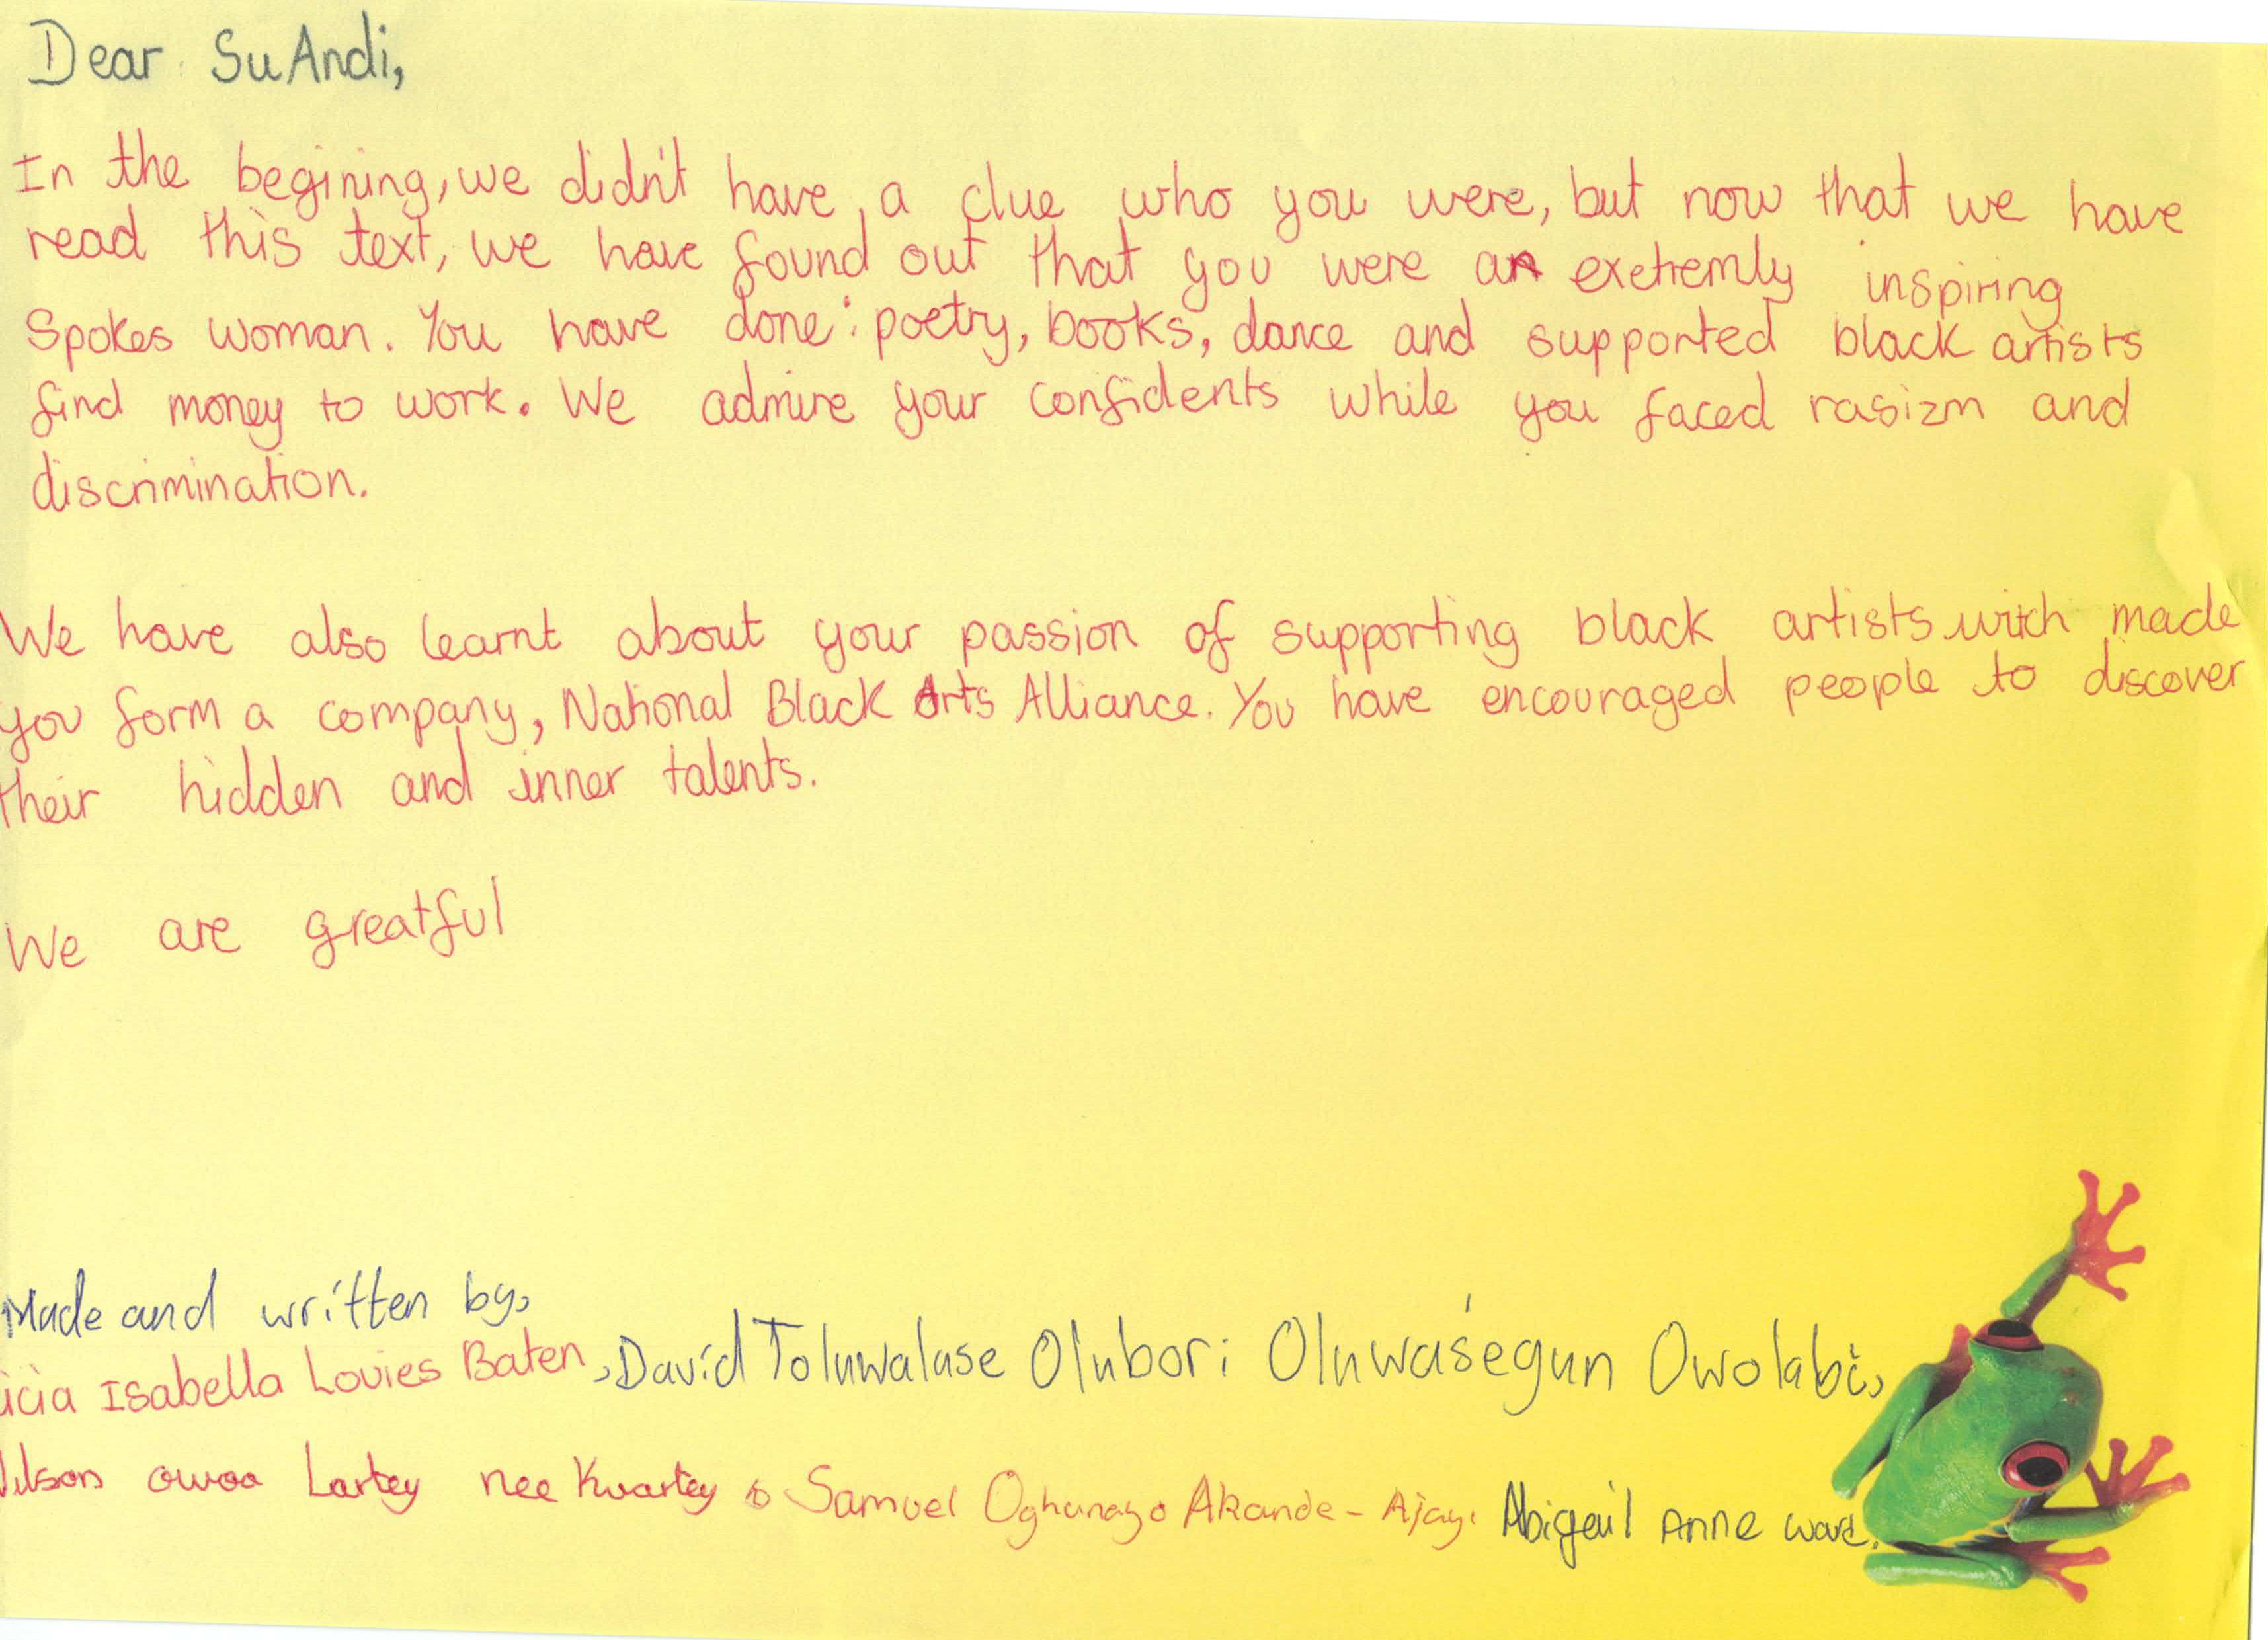 Dear SuAndi,
In the begining, we didn't have a clue who you were, but now that we have
read this text, we have found out that you were an exetremly inspiring
Spokes woman. You have done: poetry, books, dance and supported black artists
find money to work. We admire your confidents while you faced rasizm and
discrimination.
We have also learnt about your passion of supporting black artists wich made
you form a company, National Black Arts Alliance. You have encouraged people to discover
their hidden and inner talents.
We are greatful
Made and written by,
icia Isabella Lovies Baten, David Toluwalase Olubori Oluwasegun Owolabi,
owoo Lartey nee Kwartey & Samuel Akande-Ajayi Abigail Anne ward.